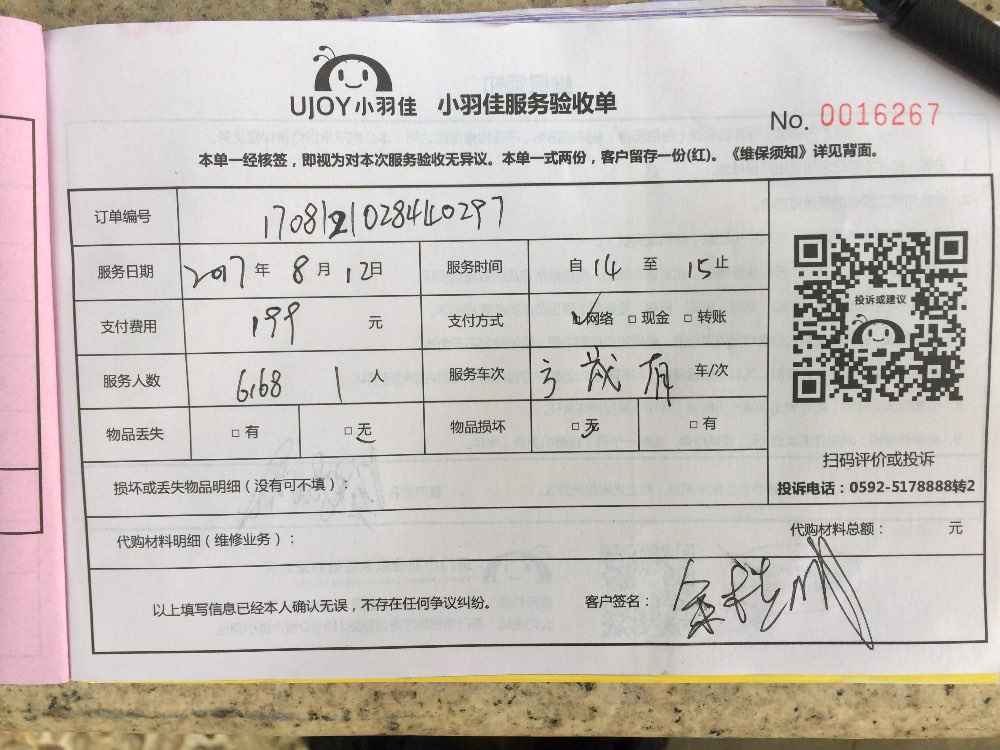 UJOY小羽佳 小羽佳服务验收单
No. 0016267
本单一经核签，即视为对本次服务验收无异议。本单一式两份，客户留存一份(红)。《维保须知》详见背面。
订单编号 1708121028440297
服务日期 2017 年 8 月 12 日 服务时间 自 14 至 15 止
支付费用 199 元 支付方式 □网络 □现金 □转账
投诉或建议
服务人数 6168 1 人 服务车次 车/次
物品丢失 □有 □无 物品损坏 □无 □有
扫码评价或投诉
损坏或丢失物品明细（没有可不填）：
投诉电话：0592-5178888转2
代购材料明细（维修业务）： 代购材料总额： 元
以上填写信息已经本人确认无误，不存在任何争议纠纷。 客户签名：